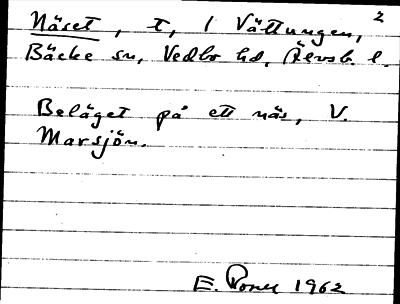 2
Näset, t, 1 Vättungen,
Bäcke sn, Vedbo hd, Älvsb. l.
Beläget på ett näs, V.
Marsjön.
E. 1962